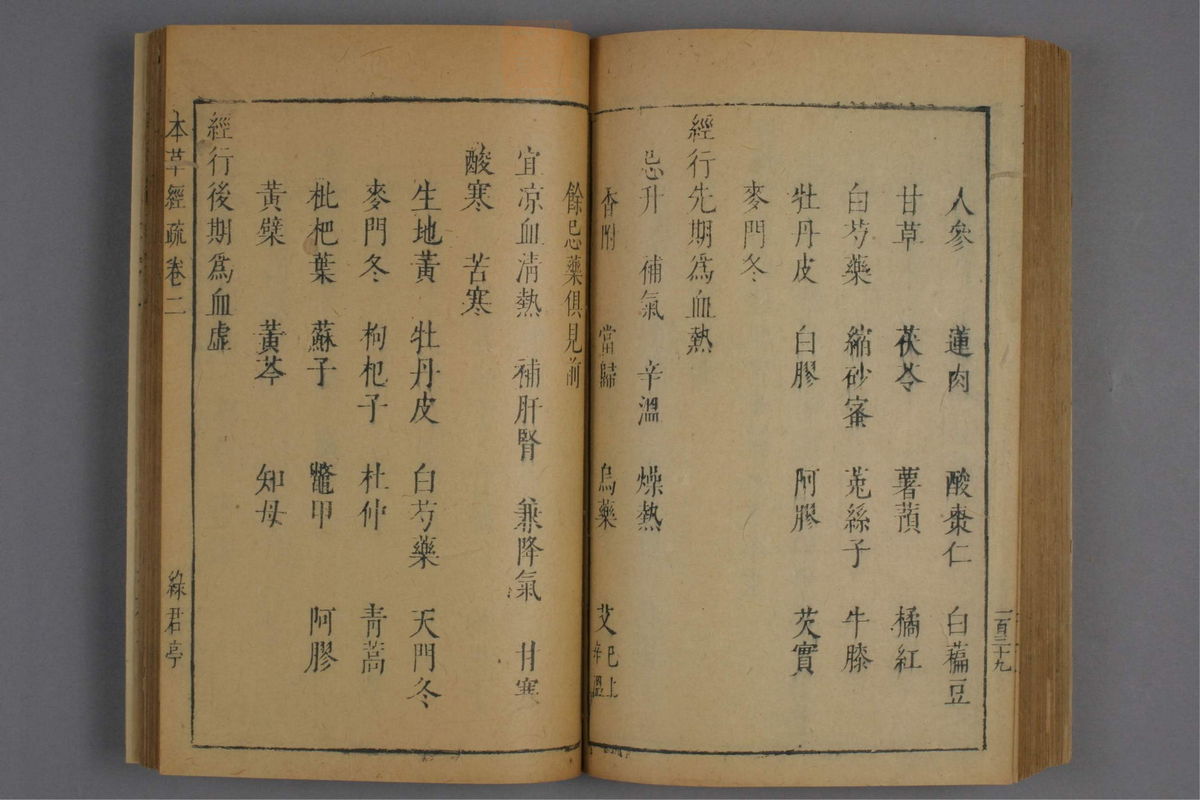 人參 蓮肉 酸棗仁 白藊豆
甘草 茯苓 薯蕷 橘紅
白芍藥 縮砂蜜 菟絲子 牛膝
牡丹皮 白膠 阿膠 芡實
麥門冬
經行先期爲血熱
忌升 補氣 辛溫 燥熱
香附 當歸 烏藥 艾已上辛溫
一百三十九
餘忌藥俱見前
宜凉血清熱 補肝腎 兼降氣 甘寒
酸寒 苦寒
生地黃 牡丹皮 白芍藥 天門冬
麥門冬 枸杞子 杜仲 青蒿
枇杷葉 蘇子 鼈甲 阿膠
黃檗 黃芩 知母
經行後期爲血虛
本草經疏 卷二 綠君亭